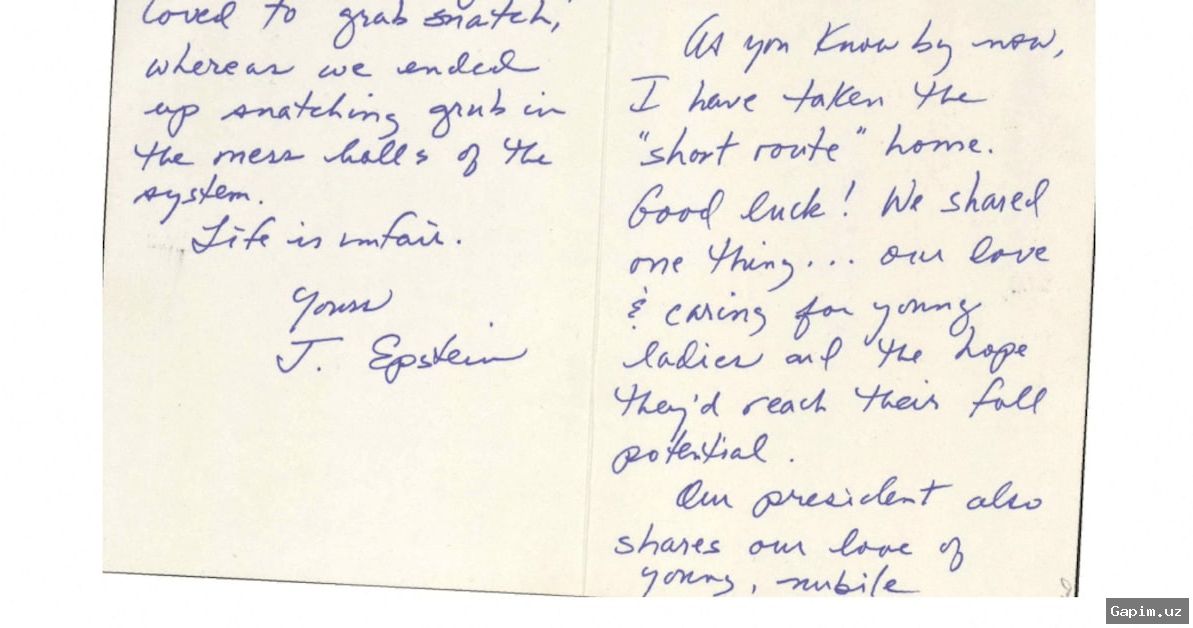 loved to grab snatch,
whereas we ended
up snatching grub in
the mess halls of the
system.
Life is unfair.
Yours
J. Epstein
As you know by now,
I have taken the
"short route" home.
Good luck! We shared
one thing... our love
& caring for young
ladies and the hope
they'd reach their full
potential.
Our president also
shares our love of
young, nubile
Gapim.uz